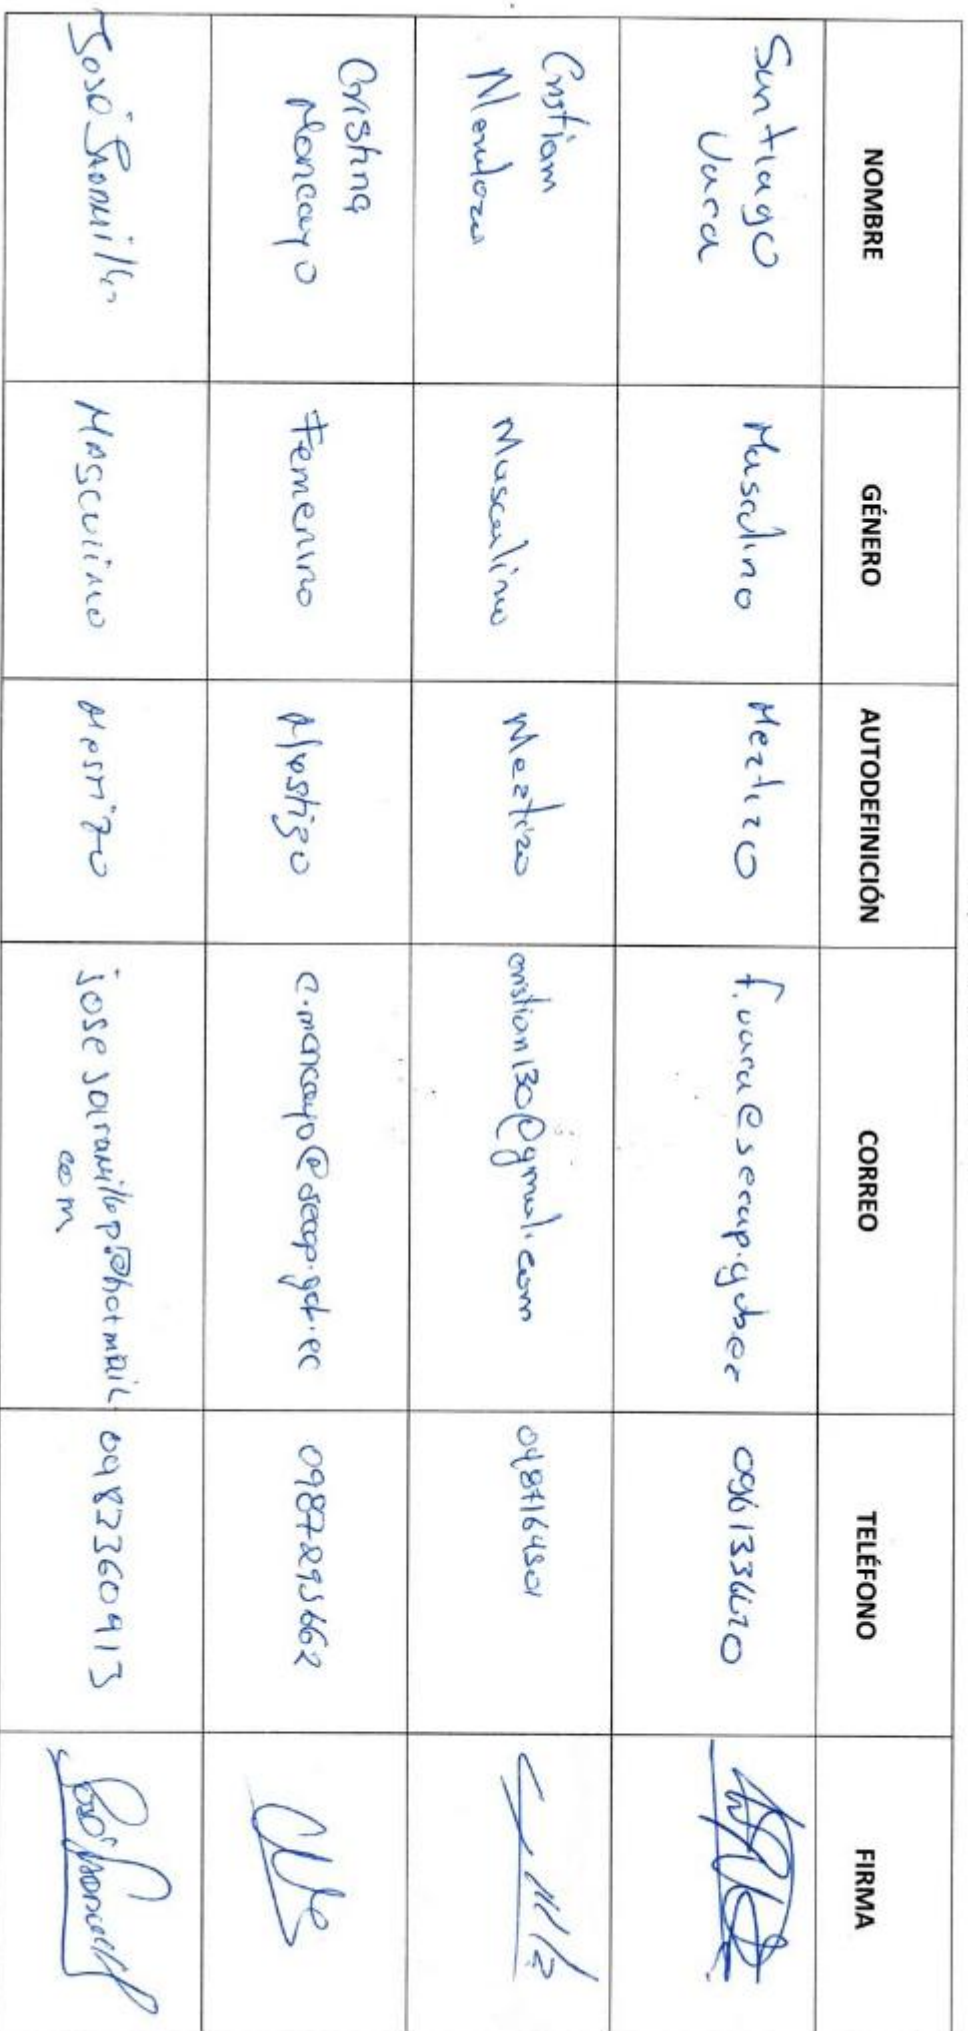 NOMBRE GÉNERO AUTODEFINICIÓN CORREO TELÉFONO FIRMA
Santiago Masculino Meztizo f.vaca@secap.gob.ec
Vaca
Cristiam Masculino Meztizo cristian130@gmail.com
Mendoza
Cristina Femenino Mestizo c.moncayo@secap.gob.ec 0987295662
Moncayo
José Jaramillo Masculino Mestizo josejaramillop@hotmail. 0982360913
com